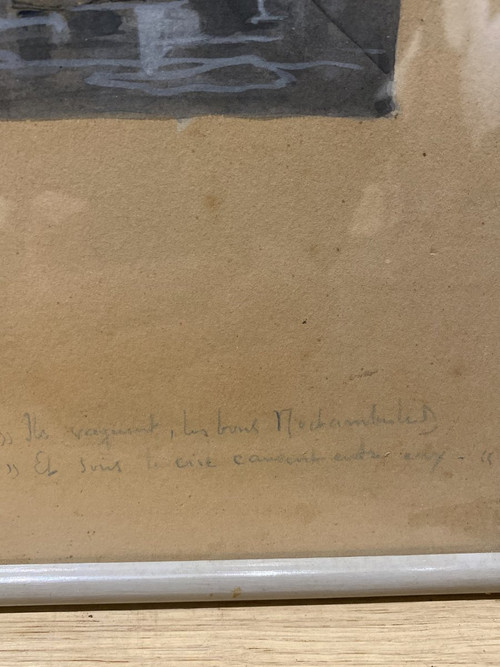 » Ils vaguent, les bons Noctambules
» Et sous le causent entre eux. «